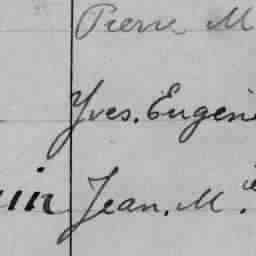 Pierre M
Yves. Eugèn
in Jean. M.ie